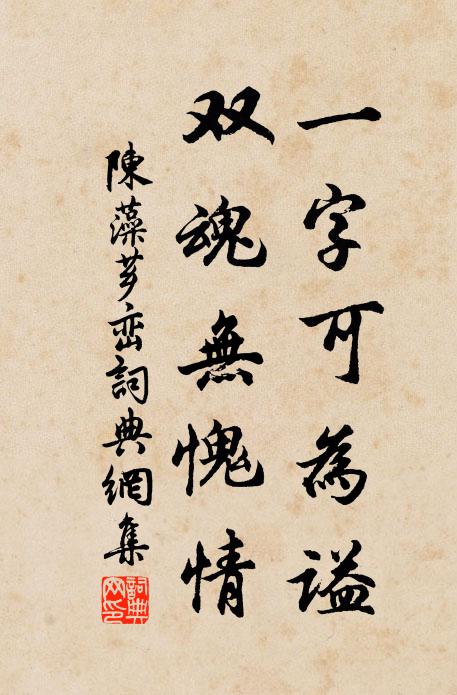 一字可為謚
双魂無愧情
陳藻芗峦詞典網集
詞典网印